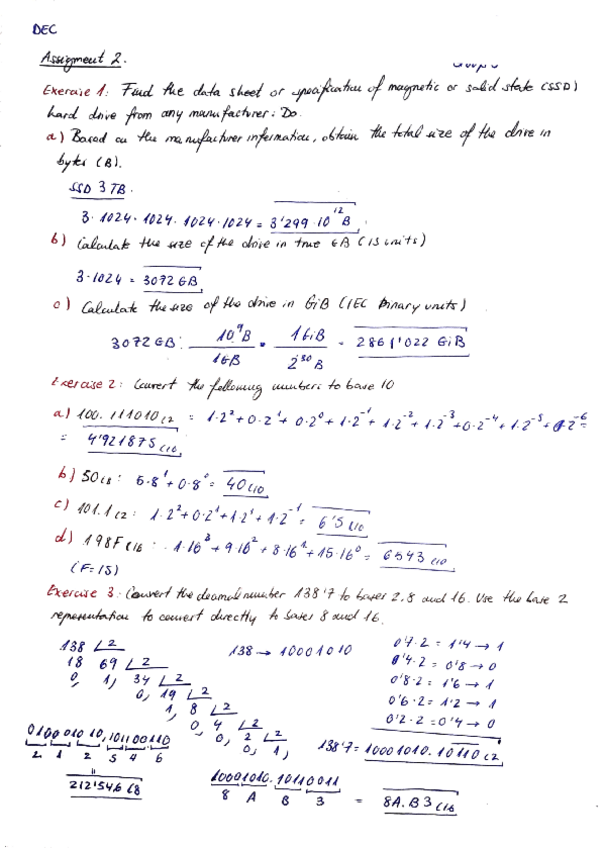 DEC
Assigment 2.
Exercise 1: Find the data sheet or specification of magnetic or solid state (SSD)
hard drive from any manufacturer: Do.
a) Based on the manufacturer information, obtain the total size of the drive in
bytes (B).
SSD 3 TB.
3 · 1024 · 1024 · 1024 · 1024 = 3'299 · 10^12 B
b) Calculate the size of the drive in true GB (IS units)
3 · 1024 = 3072 GB
c) Calculate the size of the drive in GiB (IEC Binary units)
3072 GB · 10^9 B / 1 GB · 1 GiB / 2^30 B = 2861'022 GiB
Exercise 2: Convert the following numbers to base 10
a) 100.111010(2 = 1·2^2 + 0·2^1 + 0·2^0 + 1·2^-1 + 1·2^-2 + 1·2^-3 + 0·2^-4 + 1·2^-5 + 0·2^-6 =
= 4'921875(10
b) 50(8 : 5·8^1 + 0·8^0 = 40(10
c) 101.1(2 : 1·2^2 + 0·2^1 + 1·2^1 + 1·2^-1 = 6'5(10
d) 198F(16 : 1·16^3 + 9·16^2 + 8·16^1 + 15·16^0 = 6543(10
(F=15)
Exercise 3: Convert the decimal number 138'7 to bases 2, 8 and 16. Use the base 2
representation to convert directly to bases 8 and 16.
138 2
18 69 2
0, 1, 34 2
0, 19 2
1, 8 2
0, 4 2
0, 2 2
0, 1,
138 → 10001010
0'7·2 = 1'4 → 1
0'4·2 = 0'8 → 0
0'8·2 = 1'6 → 1
0'6·2 = 1'2 → 1
0'2·2 = 0'4 → 0
138'7 = 10001010.10110(2
010001010,101100110
2 1 2 5 4 6
=
212'546(8
10001010.10110011
8 A B 3 = 8A.B3(16